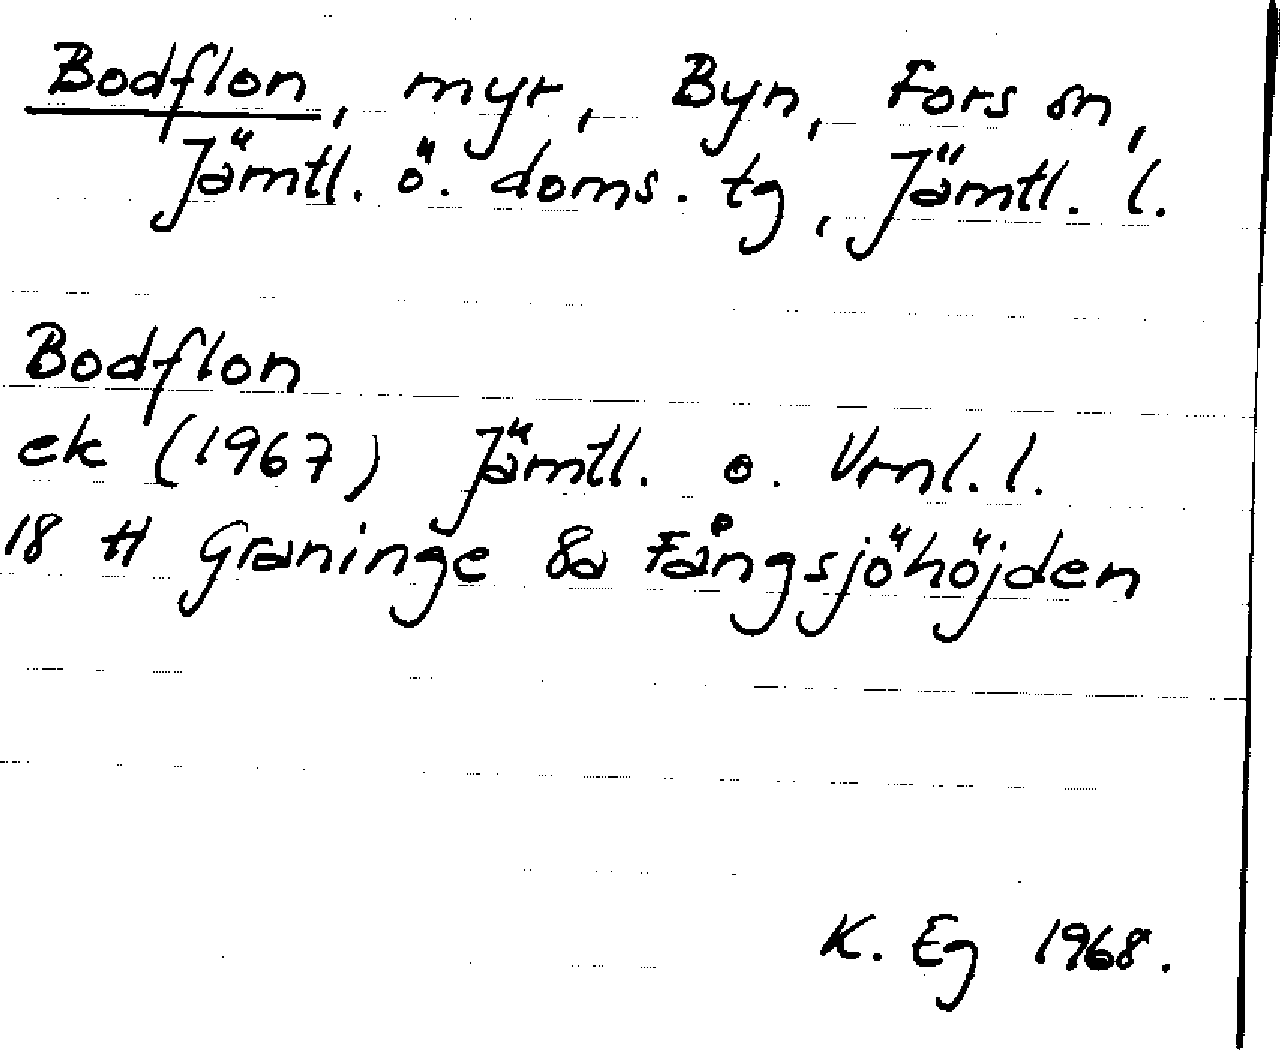 Bodflon, myr, Byn, Fors sn,
Jämtl. ö. doms. tg, Jämtl. l.
Bodflon
ek (1967) Jämtl. o. Vrnl. l.
18 H Graninge 8a Fångsjöhöjden
K. Eg 1968.